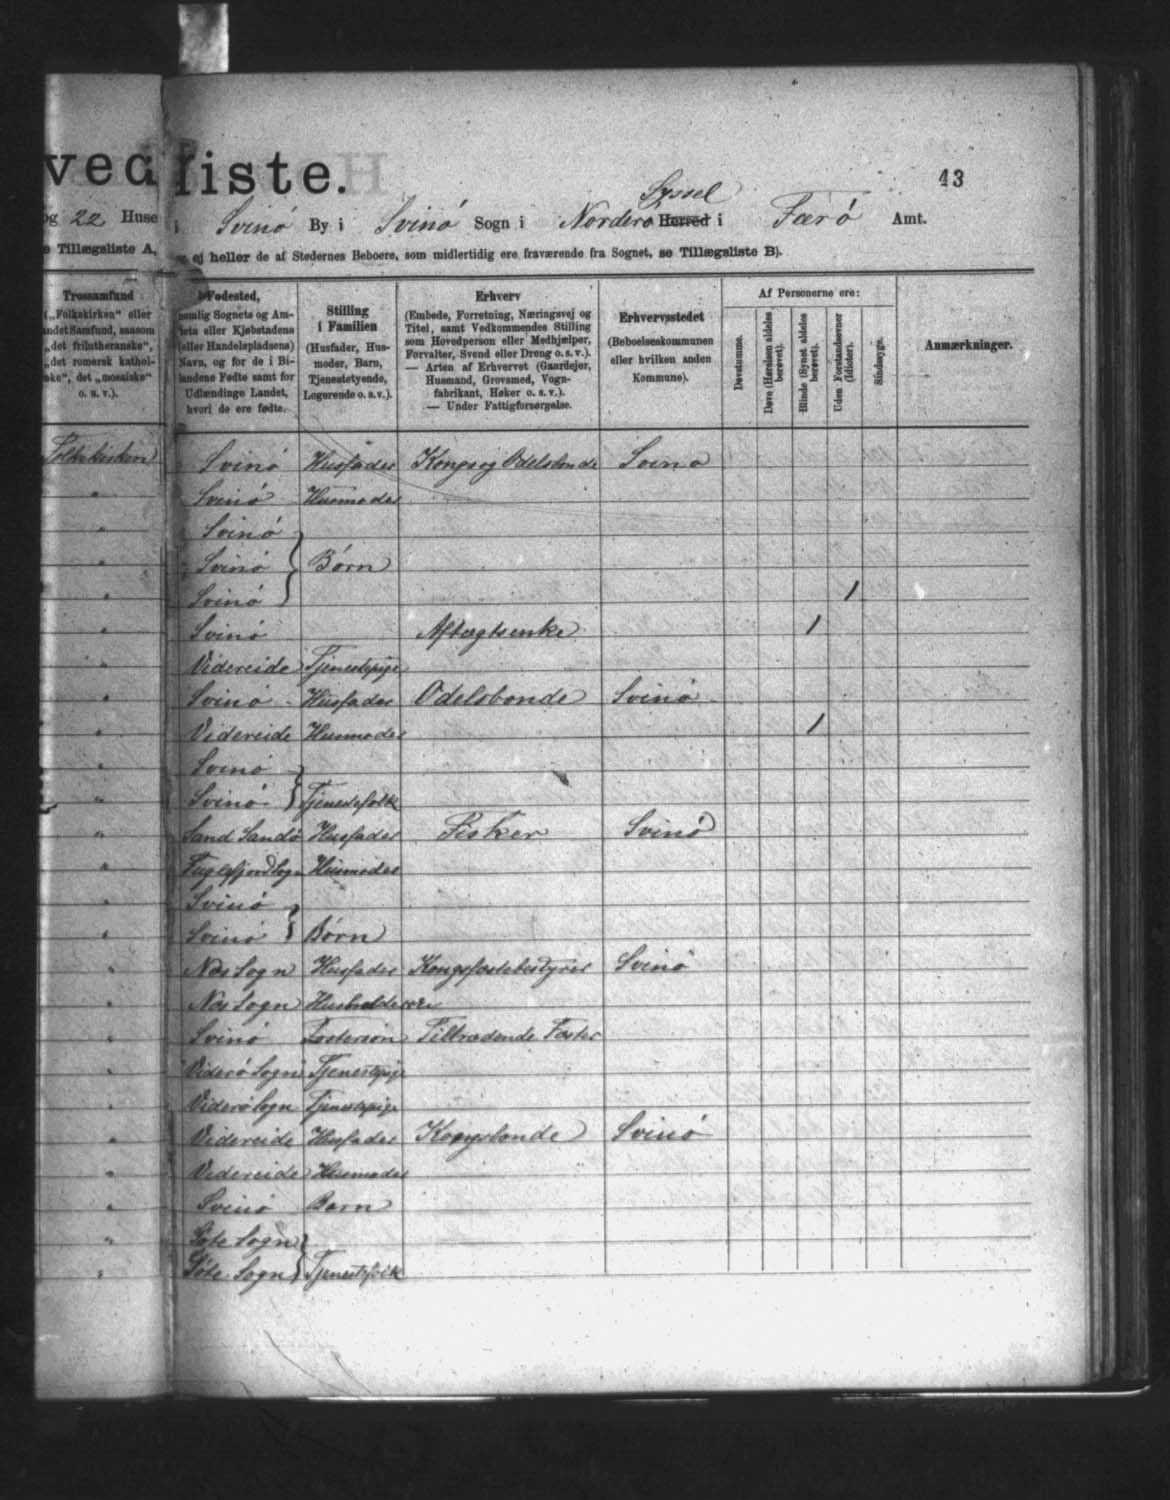 vedliste.
43
og 22 Huse
i Svinö By i Svinö Sogn i Norderö Herred Syssel i Færö Amt.
e Tillægslister A,
ej heller de af Stedernes Beboere, som midlertidig ere fraværende fra Sognet, se Tillægsliste B).
Trossamfund
(„Folkekirken“ eller
andet Samfund, saasom
„det frilutheranske“,
„det romersk kathol-
ske“, det „mosaiske“
o. s. v.).
Fødested,
nemlig Sognets og Am-
tets eller Kjøbstadens
(eller Handelspladsens)
Navn, og for de i Bi-
landene Fødte samt for
Udlændinge Landet,
hvori de ere fødte.
Stilling
i Familien
(Husfader, Hus-
moder, Barn,
Tjenestetyende,
Logerende o. s. v.).
Erhverv
(Embede, Forretning, Næringsvej og
Titel, samt Vedkommendes Stilling
som Hovedperson eller Medhjælper,
Forvalter, Svend eller Dreng o. s. v.).
— Arten af Erhvervet (Gaardejer,
Husmand, Grovsmed, Vogn-
fabrikant, Høker o. s. v.).
— Under Fattigforsørgelse.
Erhvervsstedet
(Beboelseskommunen
eller hvilken anden
Kommune).
Af Personerne ere:
Døvstumme.
Døve (Hørelsen aldeles
berøvet).
Blinde (Synet aldeles
berøvet).
Uden Forstandsevner
(Idioter).
Sindssyge.
Anmærkninger.
Folkekirken Svinö Husfader Kongs og Odelsbonde Svinö
" Svinö Husmoder
" Svinö
" Svinö } Börn
" Svinö 1
" Svinö Aftægtsenke 1
" Videreide Tjenestepige
" Svinö Husfader Odelsbonde Svinö
" Videreide Husmoder 1
" Svinö
" Svinö } Tjenestefolk
" Sand Sandö Husfader Fisker Svinö
" Fuglefjord Sogn Husmoder
" Svinö
" Svinö } Börn
" Næs Sogn Husfader Kongsfæstebestyrer Svinö
" Næs Sogn Husholderske
" Svinö Fostersön Tiltrædende Fæster
" Viderö Sogn Tjenestepige
" Viderö Sogn Tjenestepige
" Videreide Husfader Kongsbonde Svinö
" Videreide Husmoder
" Svinö Barn
" Göte Sogn
" Göte Sogn } Tjenestefolk